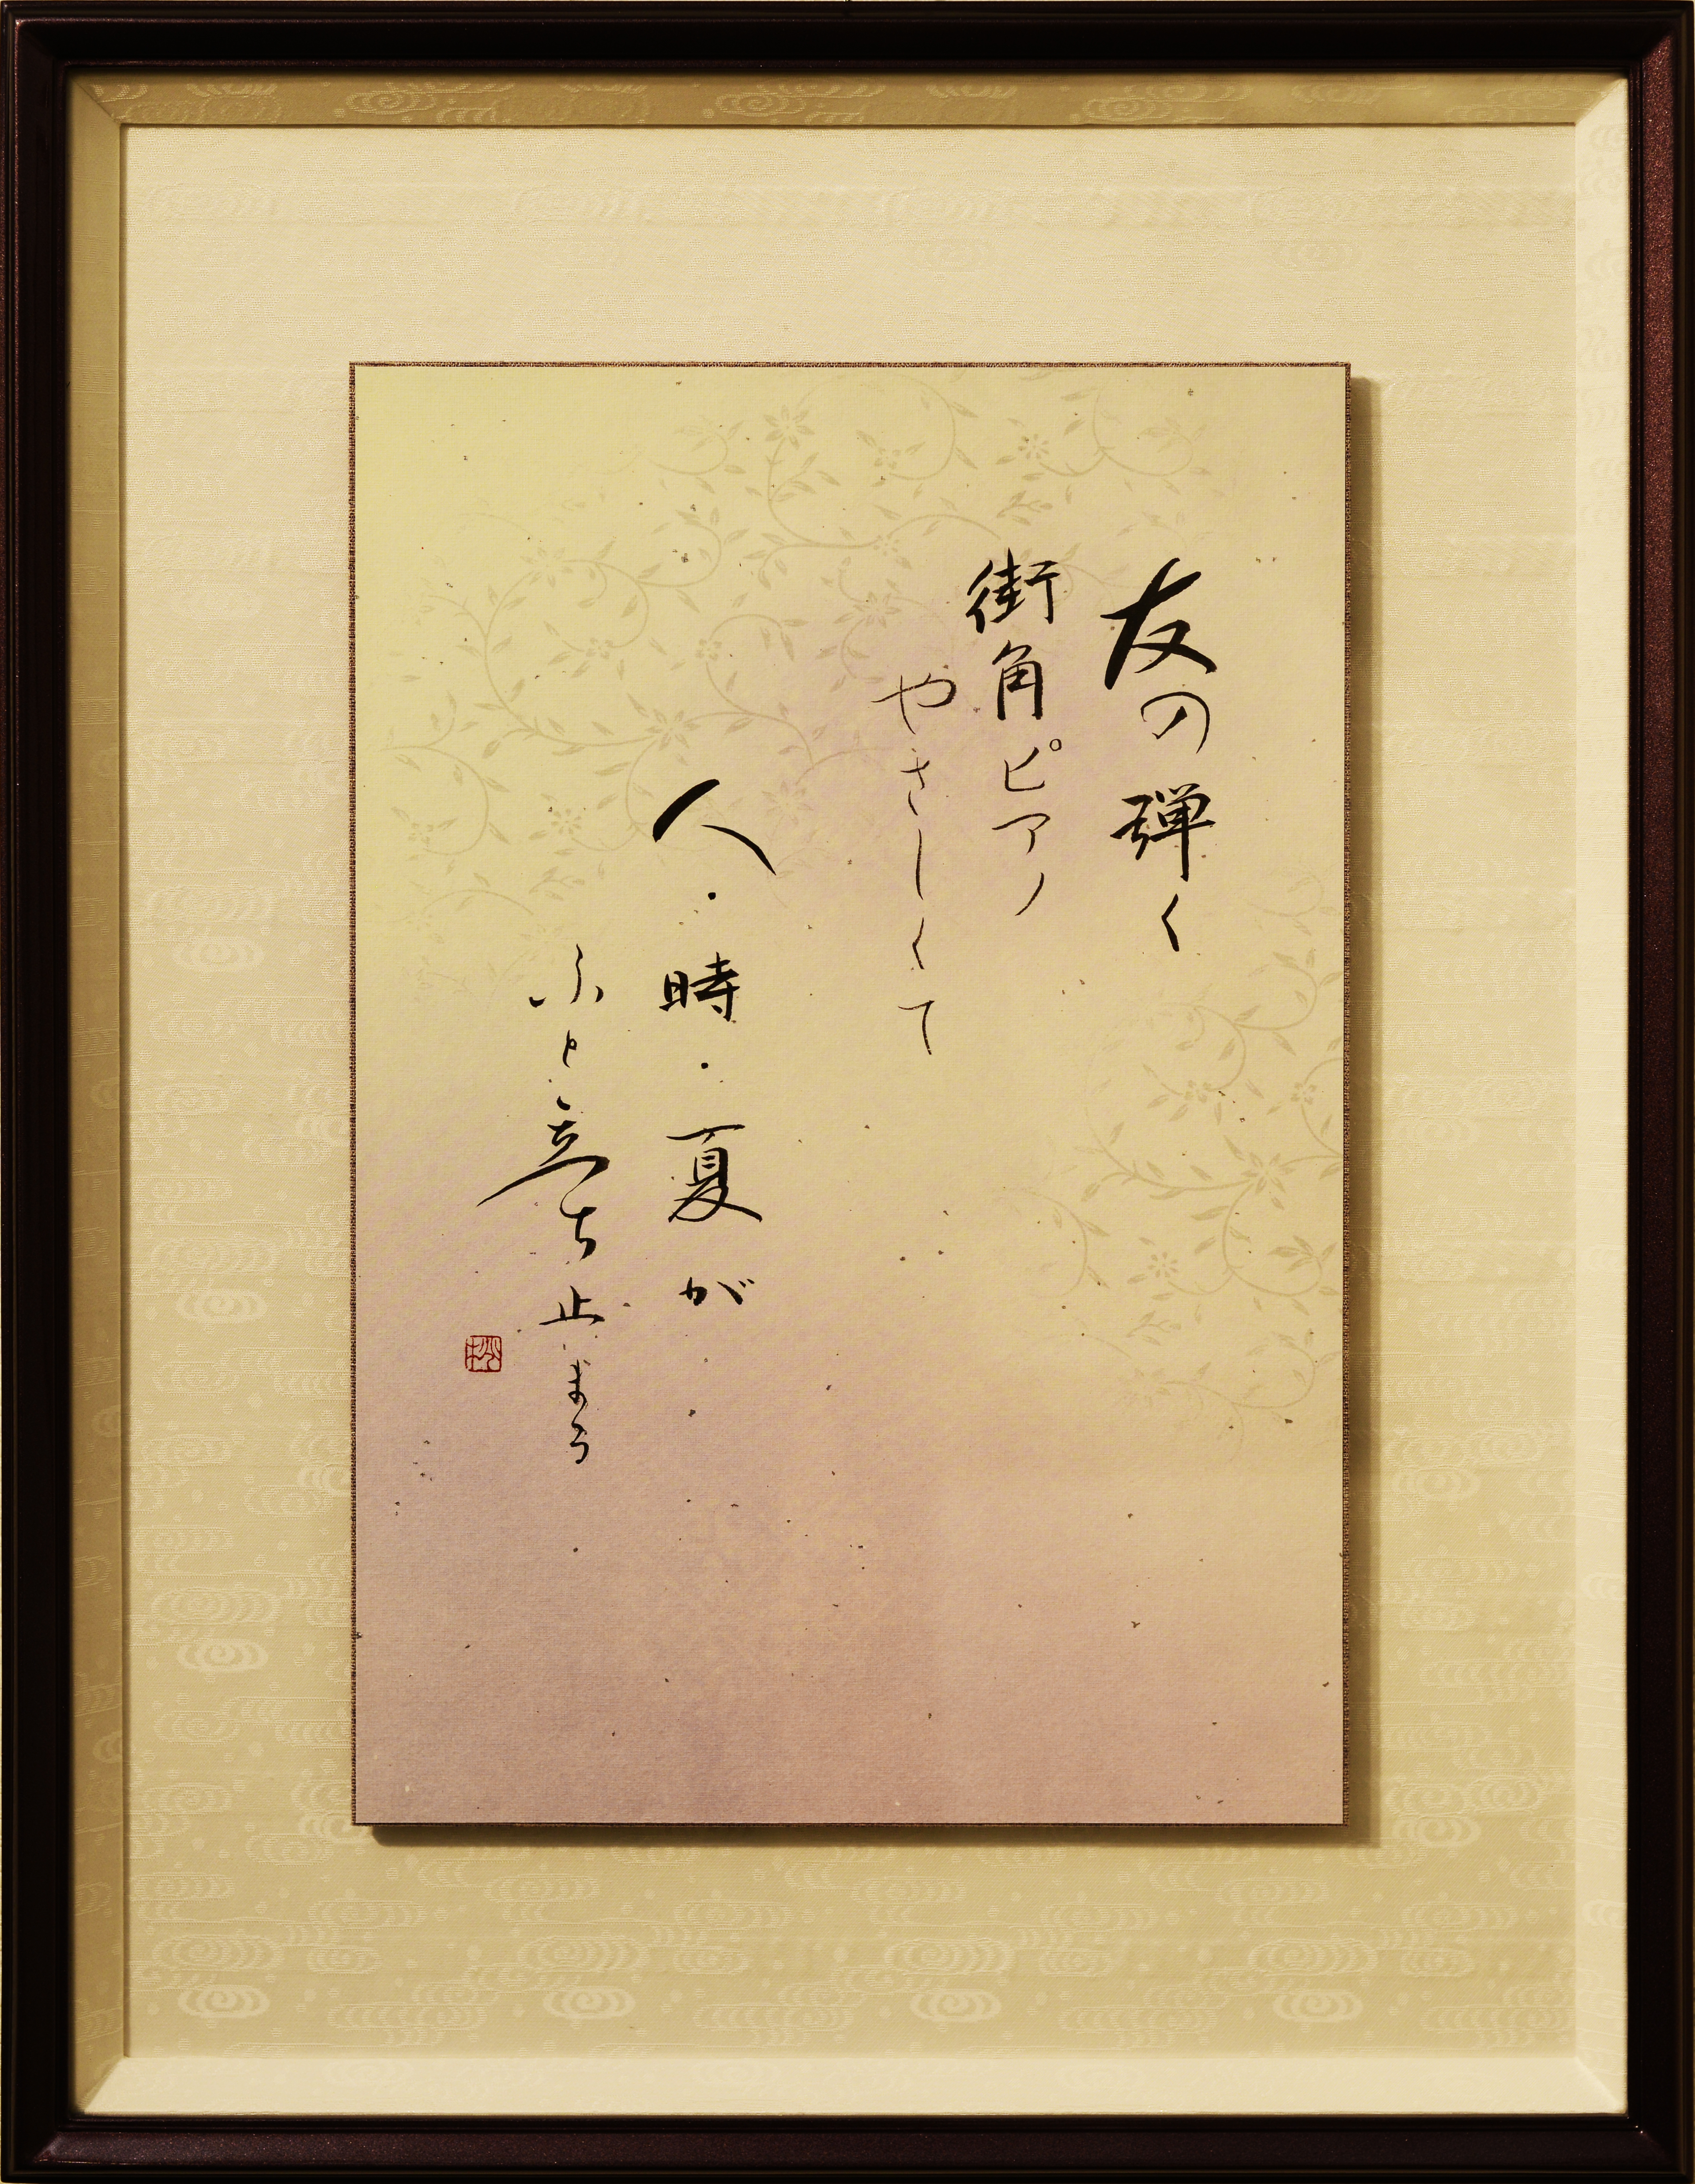 友の弾く
街角ピアノ
やさしくて
人・時・夏が
ふと立ち止まる